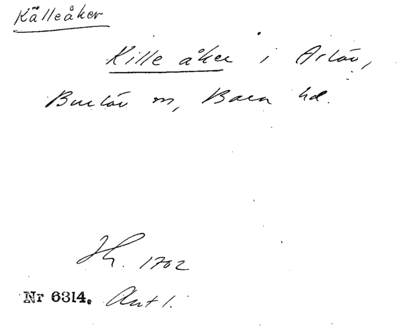 Källeåker
Kille åker i Arlöv,
Burlöv sn, Bara hd.
Jh. 1702
Nr 6314. Ant 1.